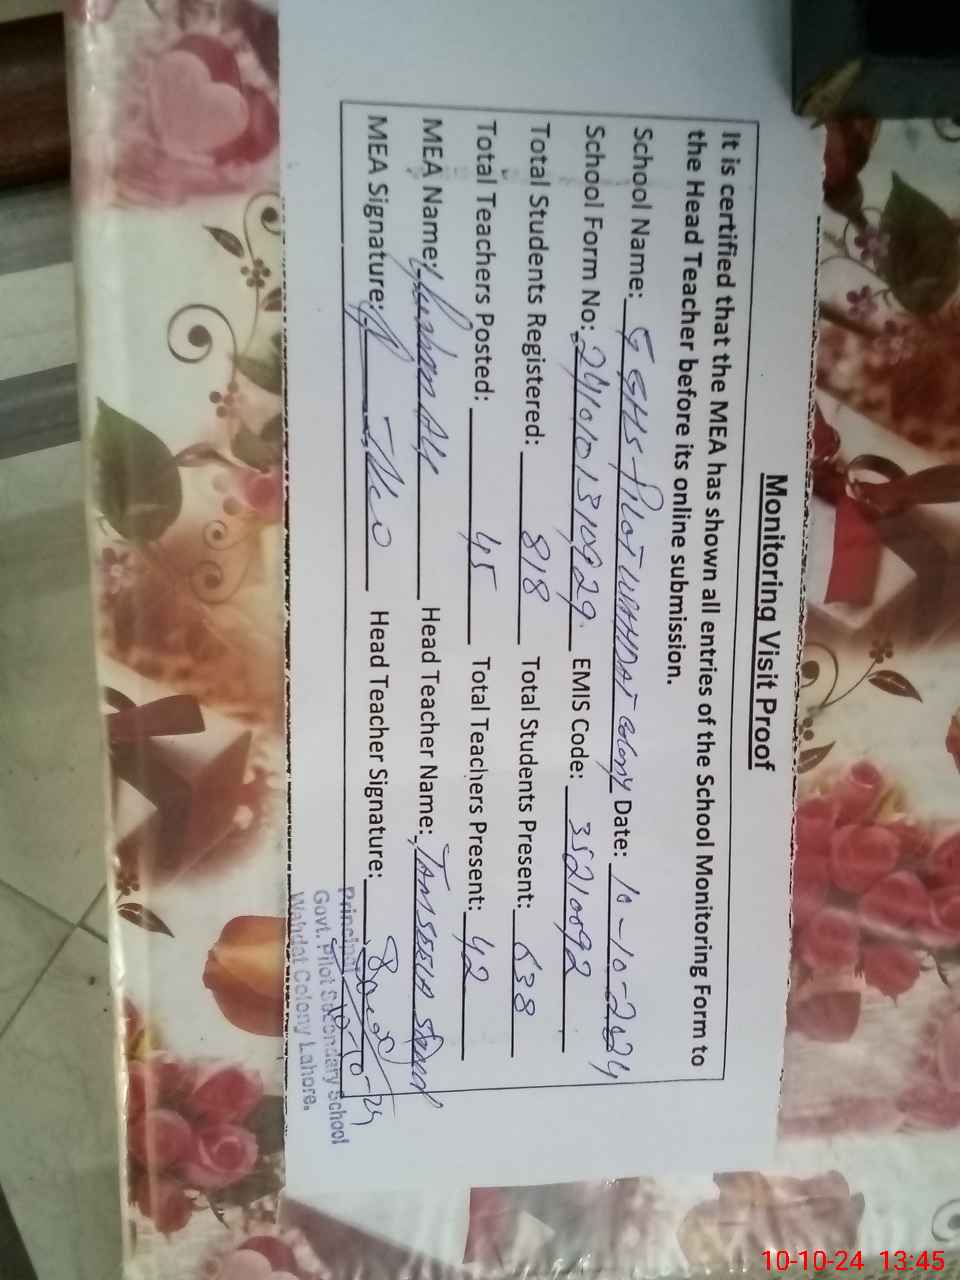 Monitoring Visit Proof
It is certified that the MEA has shown all entries of the School Monitoring Form to
the Head Teacher before its online submission.
School Name: GGHS PILOT WAHDAT Colony Date: 10-10-2024
School Form No: 2410101310929 EMIS Code: 35210092
Total Students Registered: 818 Total Students Present: 638
Total Teachers Posted: 45 Total Teachers Present: 42
MEA Name: Ali Head Teacher Name: TANSEELA
MEA Signature: Head Teacher Signature:
10-10-24
Principal
Govt. Pilot Secondary School
Wahdat Colony Lahore.
10-10-24 13:45